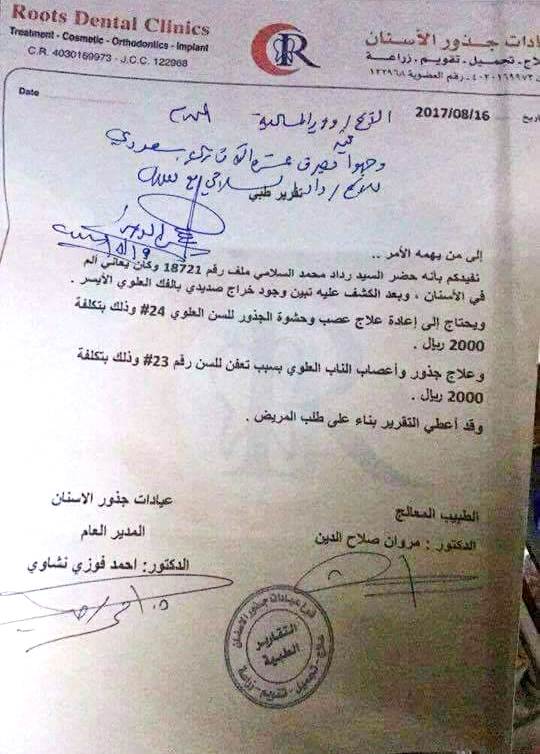 Roots Dental Clinics
Treatment - Cosmetic - Orthodontics - Implant
C.R. 4030169973 - J.C.C. 122968
عيادات جذور الأسنان
علاج - تجميل - تقويم - زراعة
٤٠٣٠١٦٩٩٧٣ - رقم العضوية ١٢٢٩٦٨
Date
2017/08/16
الأخ / وزير المالية
تقرير طبي
إلى من يهمه الأمر ..
نفيدكم بأنه حضر السيد رداد محمد السلامي ملف رقم 18721 وكان يعاني ألم
في الأسنان ، وبعد الكشف عليه تبين وجود خراج صديدي بالفك العلوي الأيسر .
ويحتاج إلى إعادة علاج عصب وحشوة الجذور للسن العلوي 24# وذلك بتكلفة
2000 ريال .
وعلاج جذور وأعصاب الناب العلوي بسبب تعفن للسن رقم 23# وذلك بتكلفة
2000 ريال .
وقد أعطي التقرير بناء على طلب المريض .
الطبيب المعالج
الدكتور : مروان صلاح الدين
عيادات جذور الاسنان
المدير العام
الدكتور : احمد فوزي نشاوي
عيادات جذور الاسنان
التقارير
الطبية
علاج - تجميل - تقويم - زراعة